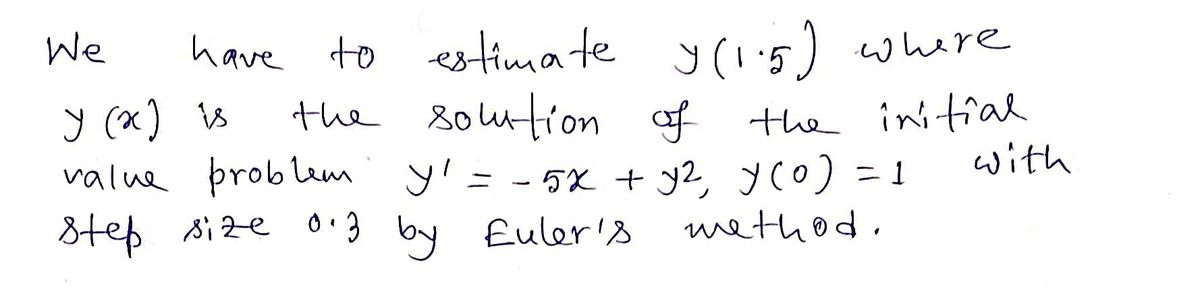 We have to estimate y(1.5) where
y(x) is the solution of the initial
value problem y' = -5x + y2, y(0) = 1 with
step size 0.3 by Euler's method.